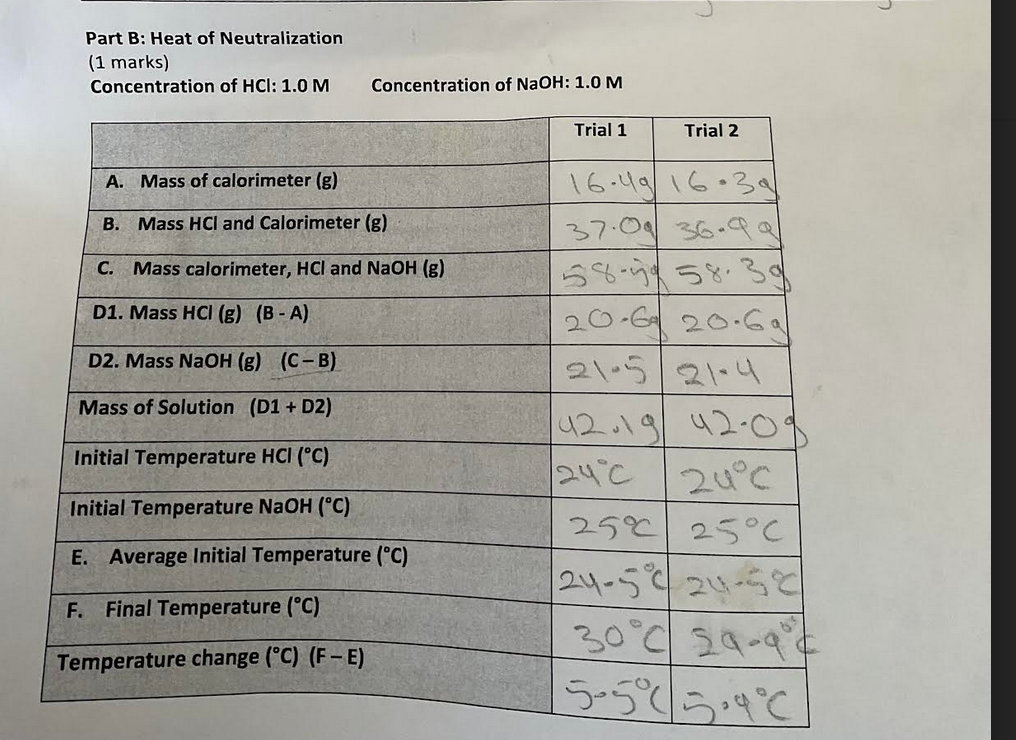 Part B: Heat of Neutralization
(1 marks)
Concentration of HCl: 1.0 M Concentration of NaOH: 1.0 M
Trial 1 Trial 2
A. Mass of calorimeter (g) 16.4g 16.3g
B. Mass HCl and Calorimeter (g) 37.0g 36.9g
C. Mass calorimeter, HCl and NaOH (g) 58.3g
D1. Mass HCl (g) (B - A) 20.6g 20.6g
D2. Mass NaOH (g) (C – B) 21.5 21.4
Mass of Solution (D1 + D2) 42.1g 42.0g
Initial Temperature HCl (°C) 24°C 24°C
Initial Temperature NaOH (°C) 25°C 25°C
E. Average Initial Temperature (°C) 24.5°C 24.5°C
F. Final Temperature (°C) 30°C 29.9°C
Temperature change (°C) (F – E) 5.5°C